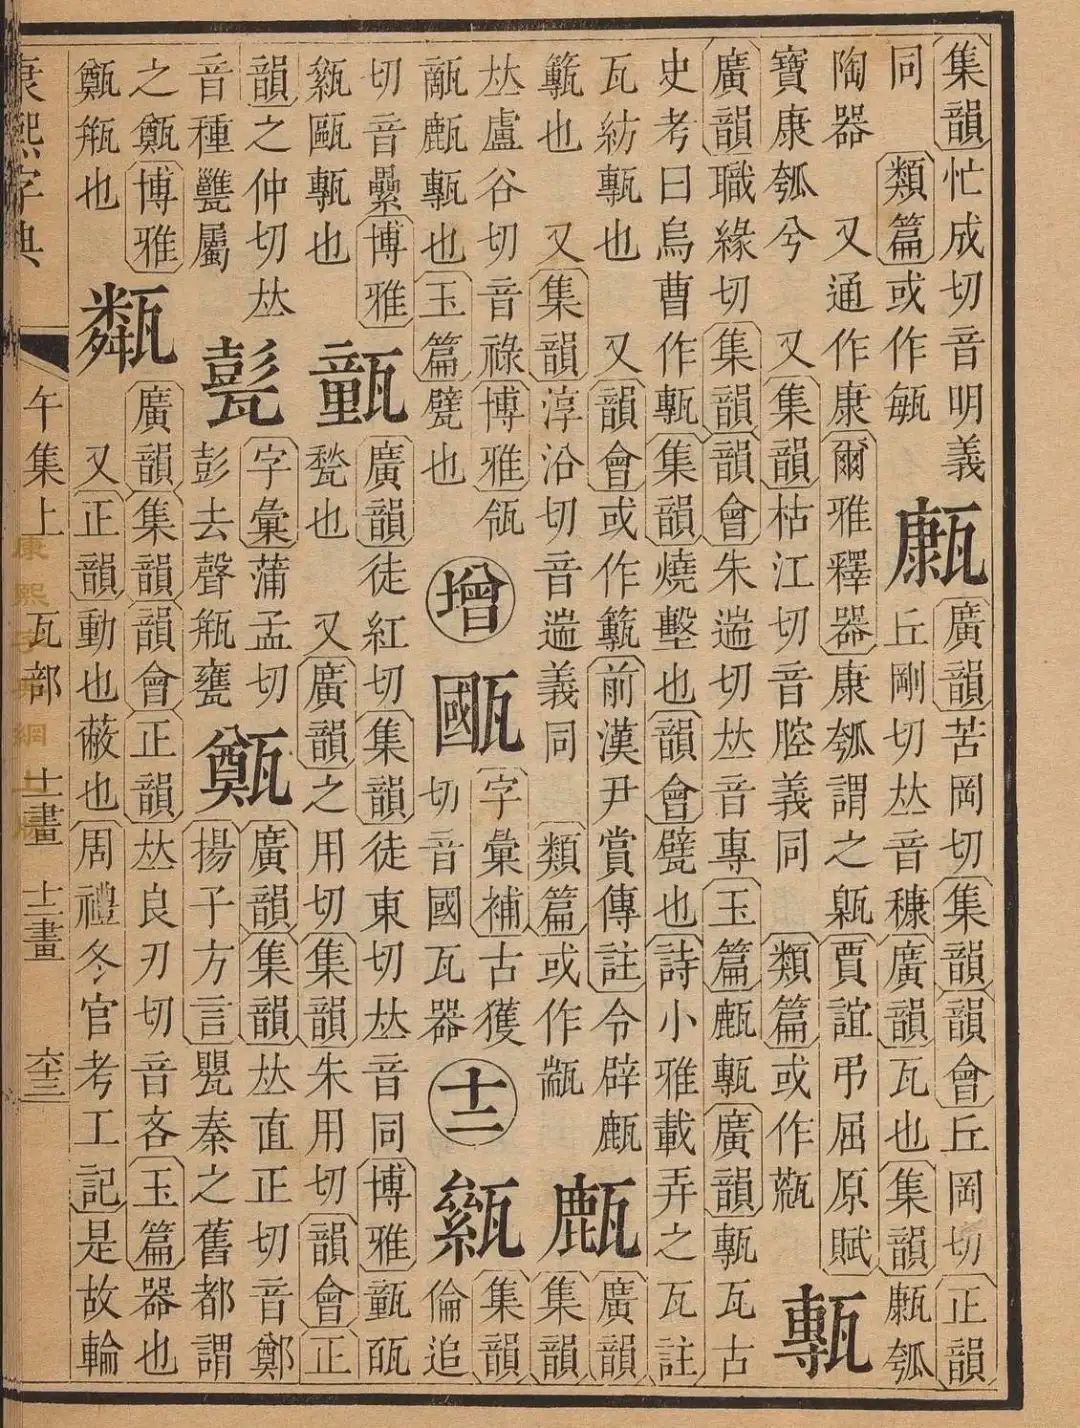 集韻忙成切音明義
同 類篇或作
㼹
廣韻苦岡切集韻韻會丘岡切正韻
丘剛切𠀤音穅廣韻瓦也集韻㼹瓠
陶器 又通作康爾雅釋器康瓠謂之甈賈誼弔屈原賦
寶康瓠兮 又集韻枯江切音腔義同 類篇或作
甎
廣韻職緣切集韻韻會朱遄切𠀤音專玉篇㼾甎廣韻甎瓦古
史考曰烏曹作甎集韻燒墼也韻會甓也詩小雅載弄之瓦註
瓦紡甎也 又韻會或作 前漢尹賞傳註令辟㼾
也 又集韻淳沿切音遄義同 類篇或作
㼾
廣韻
集韻
𠀤盧谷切音祿博雅瓴
甋㼾甎也玉篇甓也
增
字彙補古獲
切音國瓦器
十二
集韻
倫追
切音纍博雅
甌甎也
㼿
廣韻徒紅切集韻徒東切𠀤音同博雅㼿瓳
甃也 又廣韻之用切集韻朱用切韻會正
韻之仲切𠀤
音種甕屬
字彙蒲孟切
彭去聲瓶甕
㽀
廣韻集韻𠀤直正切音鄭
揚子方言甖秦之舊都謂
之㽀博雅
㽀瓶也
甐
廣韻集韻韻會正韻𠀤良刃切音吝玉篇器也
又正韻動也蔽也周禮冬官考工記是故輪
康熙字典
午集上 瓦部 十一畫 十二畫 六十三